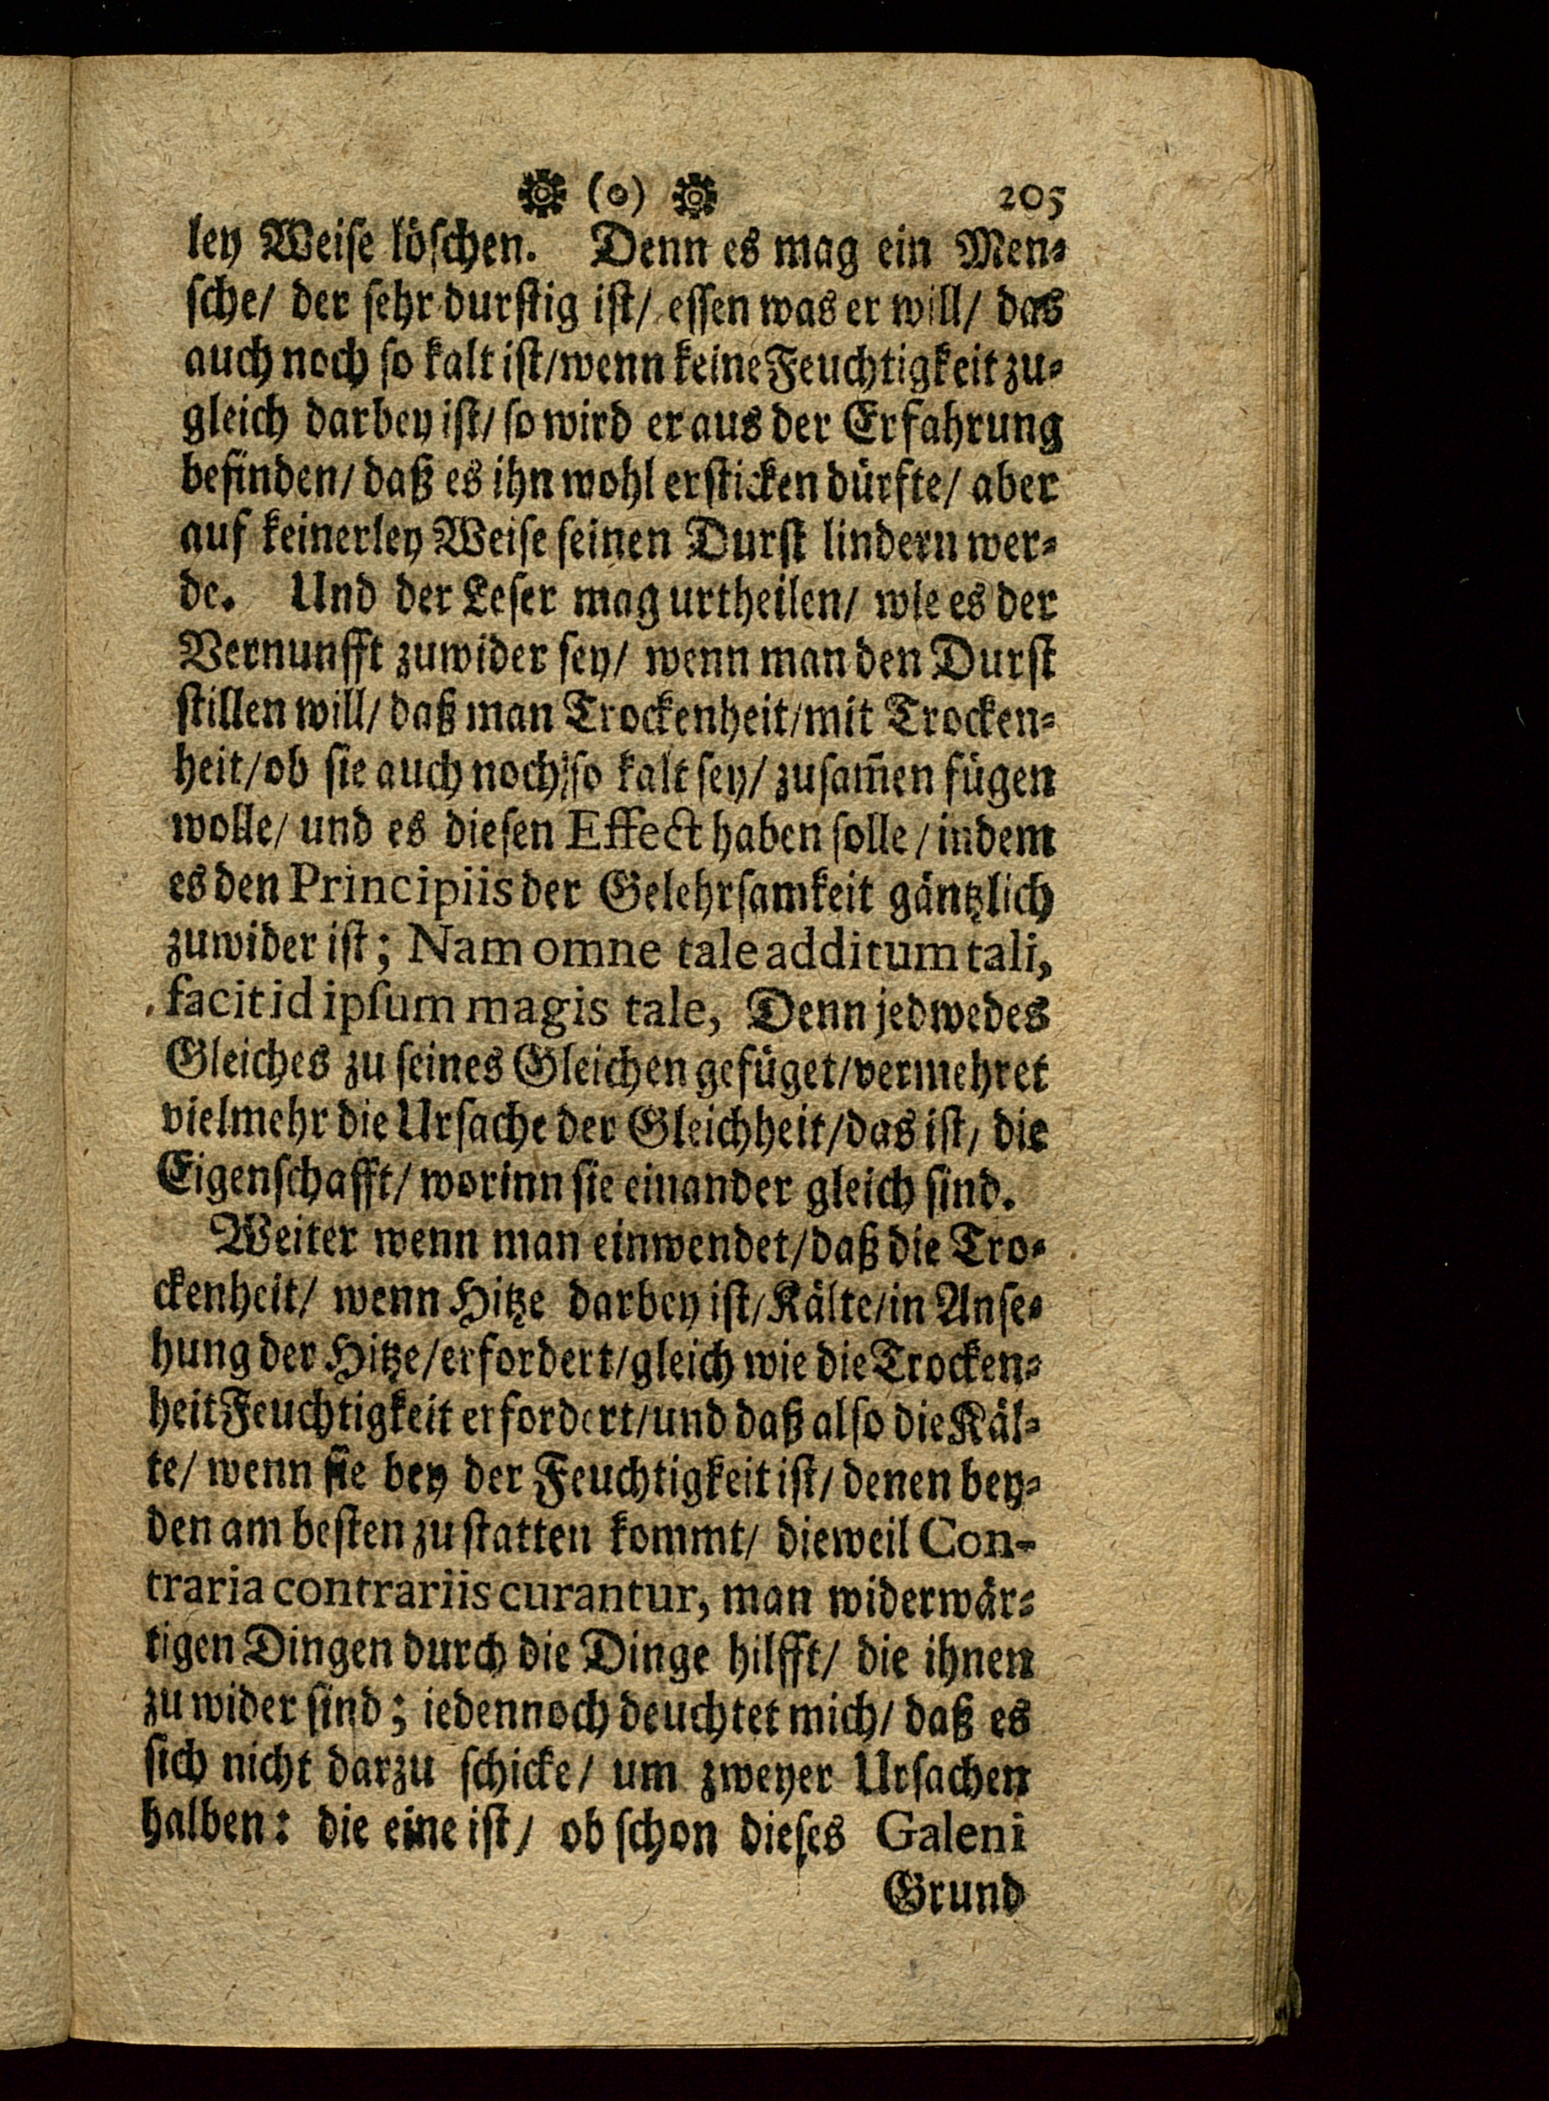 (o) 205
ley Weiſe löſchen. Denn es mag ein Men⸗
ſche/ der ſehr durſtig iſt/ eſſen was er will/ das
auch noch ſo kalt iſt/ wenn keine Feuchtigkeit zu⸗
gleich darbey iſt/ ſo wird er aus der Erfahrung
befinden/ daß es ihn wohl erſticken dürfte/ aber
auf keinerley Weiſe ſeinen Durſt lindern wer⸗
de. Und der Leſer mag urtheilen/ wie es der
Vernunfft zuwider ſey/ wenn man den Durſt
ſtillen will/ daß man Trockenheit/ mit Trocken⸗
heit/ ob ſie auch noch ſo kalt ſey/ zuſam̃en fügen
wolle/ und es dieſen Effect haben ſolle/ indem
es den Principiis der Gelehrſamkeit gäntzlich
zuwider iſt; Nam omne tale additum tali,
facit id ipſum magis tale, Denn jedwedes
Gleiches zu ſeines Gleichen gefüget/ vermehret
vielmehr die Urſache der Gleichheit/ das iſt/ die
Eigenſchafft/ worinn ſie einander gleich ſind.
Weiter wenn man einwendet/ daß die Tro⸗
ckenheit/ wenn Hitze darbey iſt/ Kälte/ in Anſe⸗
hung der Hitze/ erfordert/ gleich wie die Trocken⸗
heit Feuchtigkeit erfordert/ und daß alſo die Käl⸗
te/ wenn ſie bey der Feuchtigkeit iſt/ denen bey⸗
den am beſten zu ſtatten kommt/ dieweil Con-
traria contrariis curantur, man widerwär⸗
tigen Dingen durch die Dinge hilfft/ die ihnen
zu wider ſind; iedennoch deuchtet mich/ daß es
ſich nicht darzu ſchicke/ um zweyer Urſachen
halben: die eine iſt/ ob ſchon dieſes Galeni
Grund